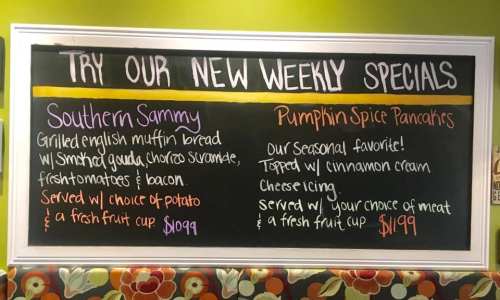 TRY OUR NEW WEEKLY SPECIALS
Southern Sammy
Grilled english muffin bread
w/ smoked gouda, chorizo scramble,
fresh tomatoes & bacon.
Served w/ choice of potato
& a fresh fruit cup $10.99
Pumpkin Spice Pancakes
our seasonal favorite!
Topped w/ cinnamon cream
cheese icing.
Served w/ your choice of meat
& a fresh fruit cup $11.99